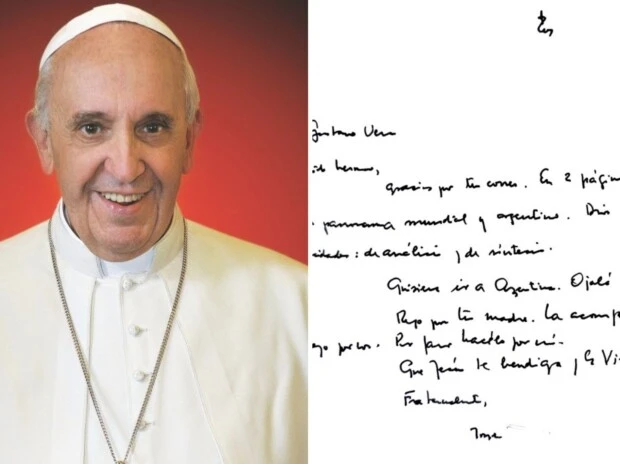 Gustavo Vera
hermano,
gracias por tu correo. En 2 página
panorama mundial y argentino. Dios
cidades: de análisis y de síntesis.
Quisiera ir a Argentina. Ojalá
Rezo por tu madre. La acomp
ego por vos. Por favor hacélo por mí.
Que Jesús te bendiga y la Vi
Fraternalmente,